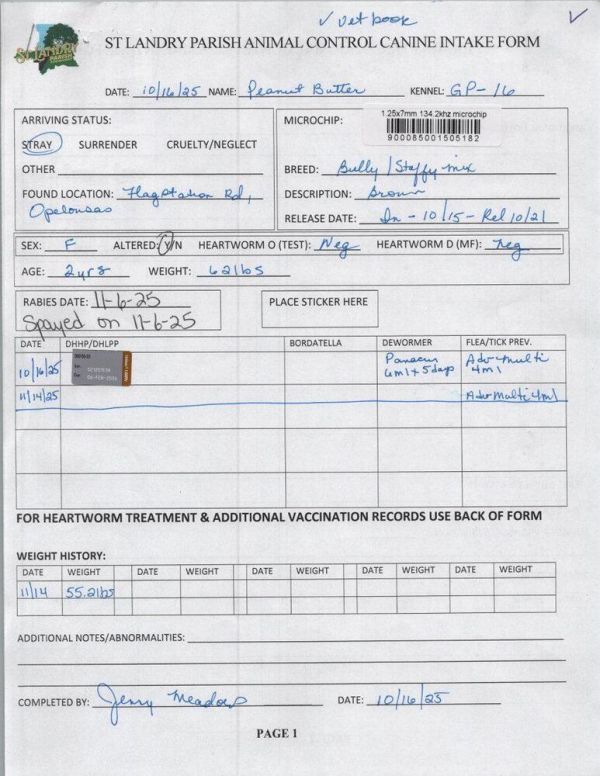 ✓ vet book ✓
ST LANDRY PARISH
ST LANDRY PARISH ANIMAL CONTROL CANINE INTAKE FORM
DATE: 10/16/25 NAME: Peanut Butter KENNEL: GP-16
ARRIVING STATUS:
STRAY SURRENDER CRUELTY/NEGLECT
OTHER
FOUND LOCATION: Flagstation Rd,
Opelousas
MICROCHIP: 1.25x7mm 134.2khz microchip
900085001505182
BREED: Bully / Staffy mix
DESCRIPTION: Brown
RELEASE DATE: In - 10/15 - Rel 10/21
SEX: F ALTERED: Y/N HEARTWORM O (TEST): Neg HEARTWORM D (MF): neg
AGE: 2yrs WEIGHT: 62lbs
RABIES DATE: 11-6-25 PLACE STICKER HERE
Spayed on 11-6-25
DATE DHHP/DHLPP BORDATELLA DEWORMER FLEA/TICK PREV.
10/16/25 Panacur 6ml x 5days Adv multi 4ml
11/14/25 Adv Multi 4ml
FOR HEARTWORM TREATMENT & ADDITIONAL VACCINATION RECORDS USE BACK OF FORM
WEIGHT HISTORY:
DATE WEIGHT DATE WEIGHT DATE WEIGHT DATE WEIGHT DATE WEIGHT
11/14 55.2lbs
ADDITIONAL NOTES/ABNORMALITIES:
COMPLETED BY: Jenny Meadows DATE: 10/16/25
PAGE 1